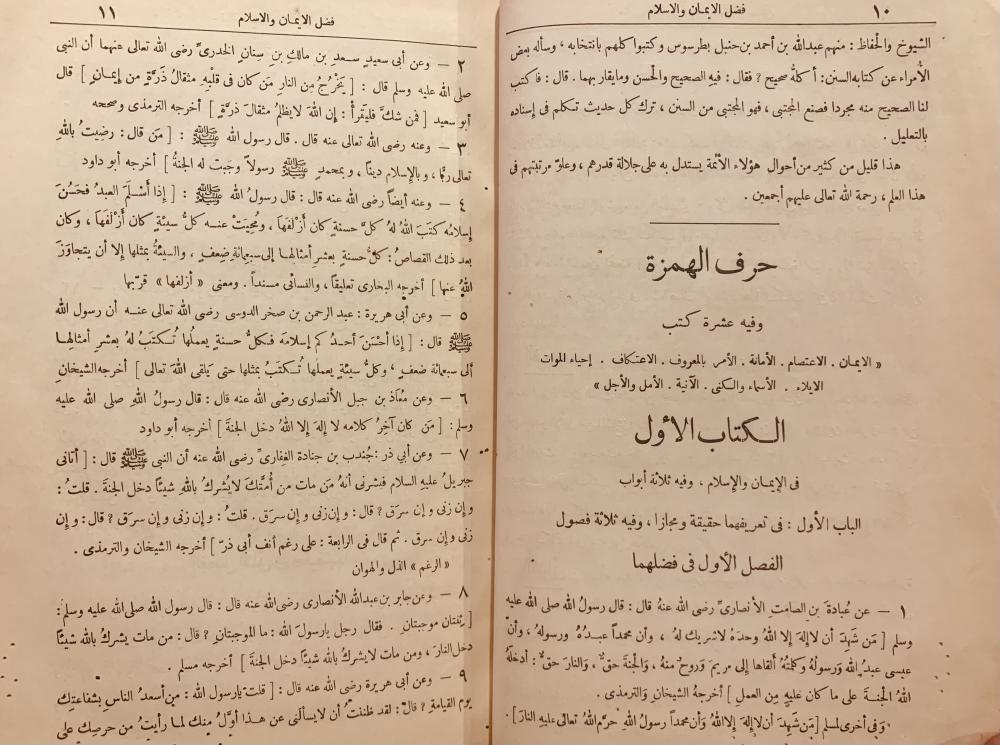 ١٠
فضل الايمان والاسلام
الشيوخ والحفاظ : منهم عبدالله بن أحمد بن حنبل بطرسوس وكتبوا كلهم بانتخابه ، وسأله بعض
الأمراء عن كتابه السنن : أ كله صحيح ؟ فقال : فيه الصحيح والحسن ومايقار بهما . قال : فاكتب
لنا الصحيح منه مجردا فصنع المجتبى ، فهو المجتبى من السنن ، ترك كل حديث تكلم فى إسناده
بالتعليل .
هذا قليل من كثير من أحوال هؤلاء الأئمة يستدل به على جلالة قدرهم ، وعلوّ مرتبتهم فى
هذا العلم ، رحمة الله تعالى عليهم أجمعين .
حرف الهمزة
وفيه عشرة كتب
« الايمان . الاعتصام . الأمانة . الأمر بالمعروف . الاعتكاف . إحياء الموات
الايلاء . الأسماء والكنى . الآنية . الأمل والأجل »
الكتاب الأول
فى الإيمان والإسلام ، وفيه ثلاثة أبواب
الباب الأول : فى تعريفهما حقيقة ومجازا ، وفيه ثلاثة فصول
الفصل الأول فى فضلهما
١ — عن عُبادةَ بنِ الصامتِ الأنصارىِّ رضى الله عنهُ قال : قال رسولُ الله صلى الله عليه
وسلم [ مَن شَهِدَ أن لاإلهَ إلا اللهُ وحدَهُ لاشريكَ لهُ ، وأن محمداً عبدُهُ ورسولهُ ، وأنَّ
عيسى عبدُ الله وَرسولُهُ وكلمتُهُ ألقاها إلى مريمَ وَروحٌ منهُ ، وَالجنةَ حقٌّ ، وَالنارَ حقٌّ : أدخلَهُ
اللهُ الجنةَ على ما كان عليهِ من العملِ ] أخرجهُ الشيخانِ وَالترمذى .
وَفى أخرى لمسلم [ مَن شَهِدَ أن لاإلهَ إلا اللهُ وَأن محمداً رسولُ اللهِ حرَّمَ اللهُ تعالى عليهِ النارَ ] .
فضل الايمان والاسلام
١١
٢ — وعن أبى سعيدٍ سعدِ بن مالكِ بن سِنانٍ الخدرىِّ رضى الله تعالى عنهما أن النبى
صلى الله عليه وسلم قال : [ يَخْرُجُ مِن النارِ مَن كان فى قلبِهِ مثقالُ ذَرَّةٍ من إيمانٍ ] قال
أبو سعيد [ فمن شكَّ فليَقرأْ : إن اللهَ لايظلمُ مثقالَ ذرةٍ ] أخرجه الترمذى وصححه
٣ — وعنه رضى الله تعالى عنه قال . قال رسول الله ﷺ : [ مَن قال : رضِيتُ باللهِ
تعالى ربًّا ، وبالإسلامِ ديناً ، وبمحمدٍ ﷺ رسولاً وجَبت له الجنةُ ] أخرجه أبو داود
٤ — وعنه أيضاً رضى الله عنه قال : قال رسولُ الله ﷺ : [ إذا أسْلمَ العبدُ فحَسُنَ
إسلامُه كتَبَ اللهُ لهُ كلَّ حسنةٍ كان أَزْلفَهَا ، ومُحِيَتْ عنه كلُّ سيئةٍ كان أَزْلفَهَا ، وكان
بعد ذلك القصاصُ : كلُّ حسنةٍ بعشرِ أمثالها إلى سبعِمائةِ ضِعفٍ ، والسيئةُ بمثلها إلا أن يتجاوَزَ
اللهُ عنها ] أخرجه البخارى تعليقاً ، والنسائى مسنداً . ومعنى « أزلفها » قرّبها
٥ — وعن أبى هريرة : عبد الرحمن بن صخر الدوسى رضى الله تعالى عنه أن رسول الله
ﷺ قال : [ إذا أحْسَنَ أحدُ كم إسلامَه فكلُّ حسنةٍ يعملُها تُكتَبُ لهُ بعشرِ أمثالِها
إلى سبعمائة ضعفٍ ، وكلُّ سيئةٍ يعملها تُكتَبُ بمثلها حتى يَلقى اللهَ تعالى ] أخرجه الشيخان
٦ — وعن مُعاذِ بن جبل الأنصارى رضى الله عنه قال : قال رسولُ اللهِ صلى الله عليه
وسلم : [ مَن كان آخِرُ كلامه لا إلهَ إلا اللهُ دخل الجنةَ ] أخرجه أبو داود
٧ — وعن أبى ذر : جُندبِ بن جنادة الغِفارى رضى الله عنه أن النبى ﷺ قال : [ أتانى
جبريلُ عليهِ السلام فبشرنى أنهُ مَن مات من أُمتِكَ لايُشركُ باللهِ شيئًا دخل الجنةَ . قلتُ :
وإن زنى وإن سرَق ؟ قال : وإن زنى وإن سرَق . قلتُ : وإن زنى وإن سرَق ؟ قال : وإن
زنى وإن سرق . ثم قال فى الرابعة : على رغم أنف أبى ذرّ ] أخرجه الشيخان والترمذى .
« الرغم » الذل والهوان
٨ — وعن جابر بن عبدالله الأنصارى رضى الله عنه قال : قال رسول الله صلى الله عليه وسلم :
[ ثِنْتان موجبتانِ . فقال رجل يارسولَ الله : ما الموجبتانِ ؟ قال : من مات يشركُ بالله شيئًا
دخل النارَ ، ومن مات لايشركُ بالله شيئًا دخل الجنةَ ] أخرجه مسلم .
٩ — وعن أبى هريرة رضى الله عنه قال : [ قلت يارسول الله : من أسعدُ الناسِ بشفاعتِك
يوم القيامةِ ؟ قال : لقد ظننتُ أن لايسألنى عن هذا أوَّلُ منك لما رأيتُ من حرصِك على